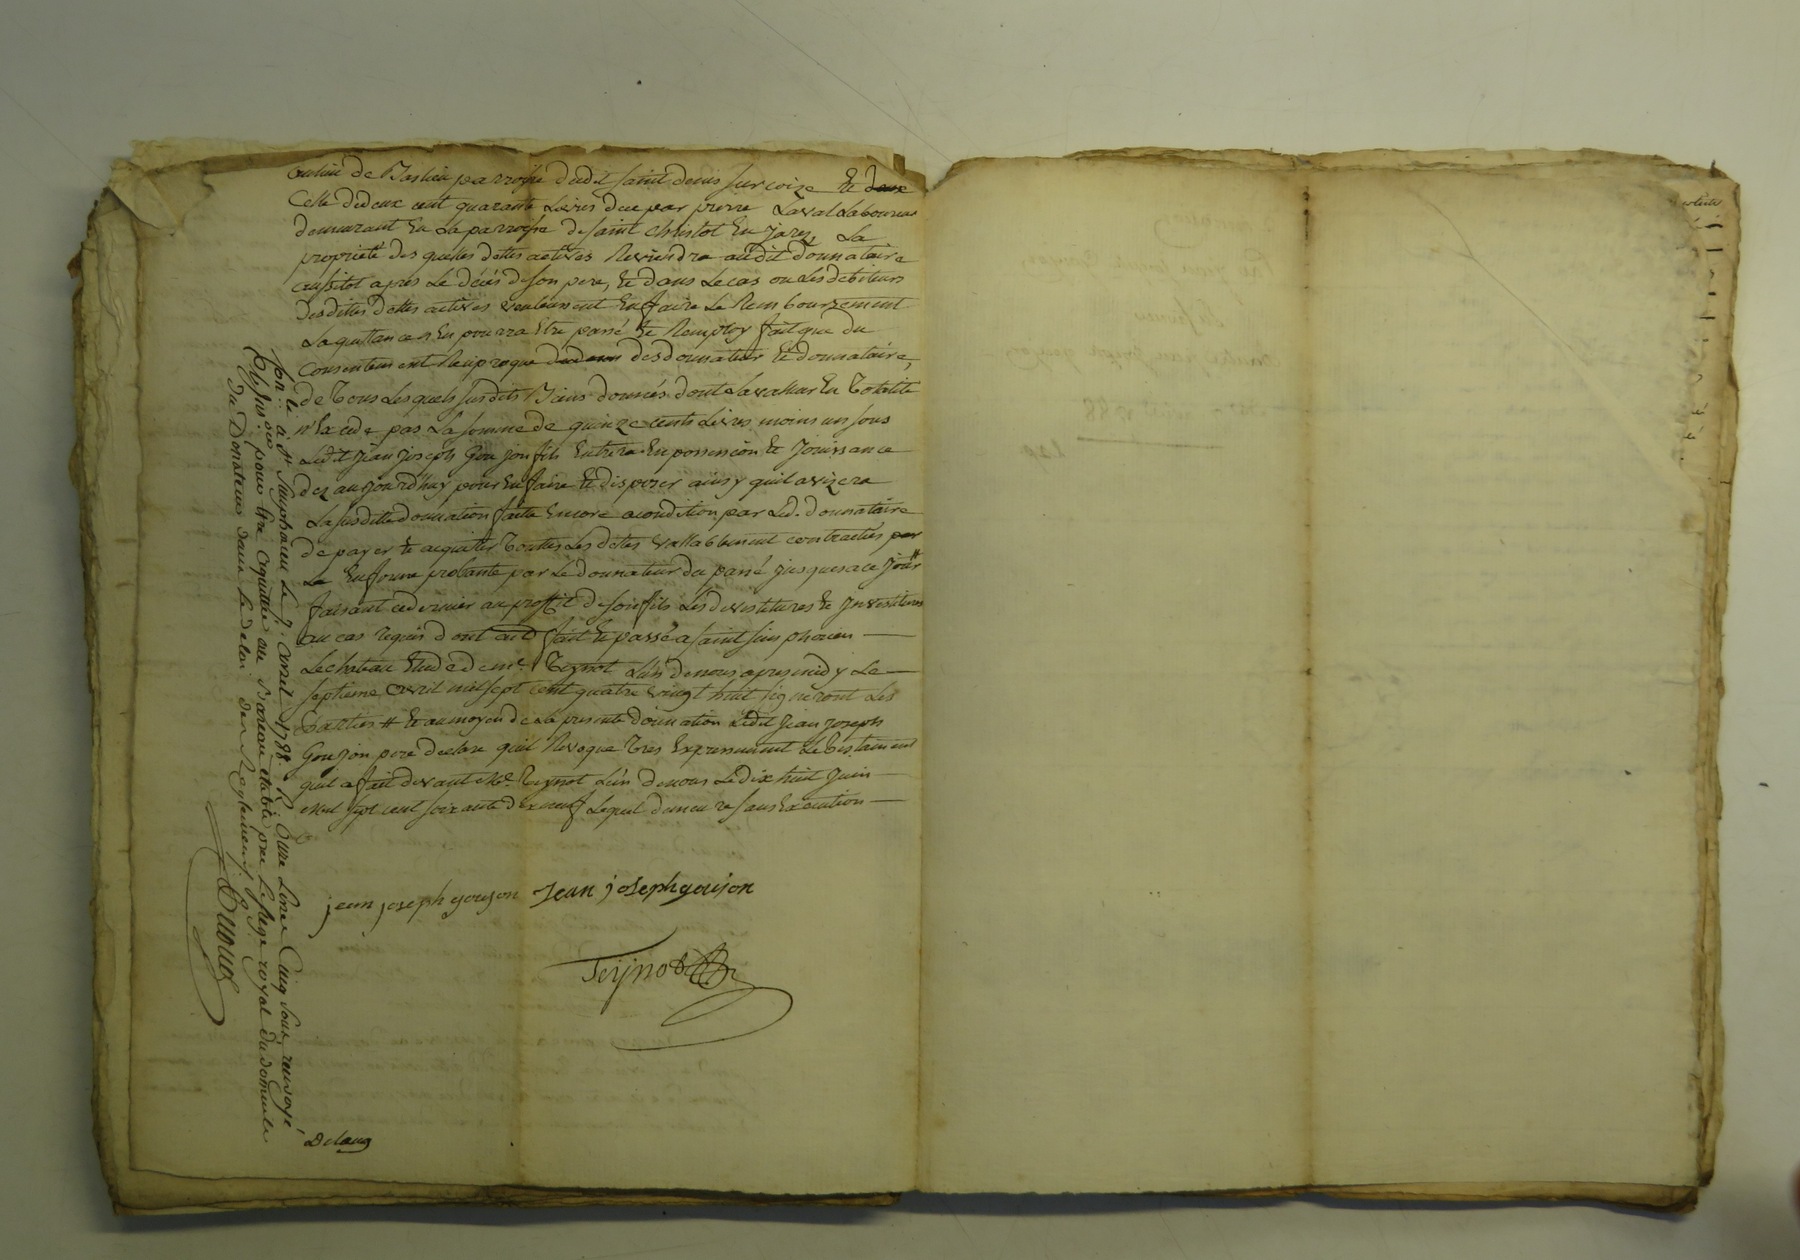 de Baslieu parroisse dudit saint denis sur coize et deux
Celle dedeux cent quarante Livres due par pierre Laval Laboureur
demeurant En La parroisse de saint christot En Jarez, La
proprieté des quelles dettes actives Reviendra audit donnataire
aussitot apres Le décés deson pere, Et dans Lecas ou Les debiteurs
Desdittes dettes actives voulussent En faire Le Remboursement
La quittance n'En pourra Etre passé Et Remploy fait que du
Consentement Reciproque desdonnateur Et donnataire,
de Tous Lesquels susdits Biens donnés dont La valleur En Totalité
n'Excede pas La somme de quinze cents Livres moins un sous
Ledit Jean Joseph Goujon fils Entrera En possession Et Jouissance
dez aujourdhuy pour En faire Et disposer ainsy quil avizera
La susditte donnation faitte Encore acondition par Led. donnataire
de payer Et acquitter Touttes Les dettes vallablement contractées par
Le En forme probante par Le donnateur du passé jusques a ce Jour #
faisant ce dernier au proffit de son fils Les devestitures Et Investitures
au cas requis dont acte fait Et passé a saint simphorien
Lechateau Etude de me. Teynot L'un de nous apres midy Le
septieme avril mil sept cent quatre vingt huit signeront Les
Parties # Et au moyen de La presente donnation Ledit Jean Joseph
Goujon pere declare quil Revoque Tres Expressement Le Testament
quil a fait devant Me. Teynot L'un de nous Le dix huit Juin
mil sept cent soixante dix neuf Lequel demeure sans Execution
jean joseph goujon Jean joseph goujon
Teynot
Con.lé à St Simphorien Le 7. avril 1788. R. Onze Livres Cinq sous, renvoyé
pour être acquittée au Bureau établi pres Le siege royal du domicile
du Donateur dans Le delai des Reglements
Delaug
1788